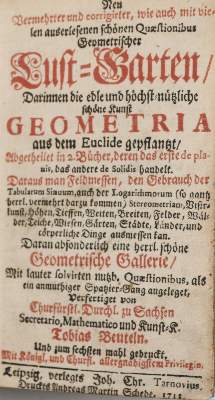 Neu
Vermehrter und corrigirter, wie auch mit vie-
len auserlesenen schönen Quæstionibus
Geometrischer
Lust-Garten/
Darinnen die edle und höchst-nützliche
schöne Kunst
GEOMETRIA
aus dem Euclide gepflantzt/
Abgetheilet in 2. Bücher, deren das erste de pla-
nis, das andere de Solidis handelt.
Daraus man Feldmessen, den Gebrauch der
Tabularum Sinuum, auch der Logarithmorum (so gantz
herrl. vermehrt dazu kommen / Stereometriam, Visir-
kunst, Höhen, Tieffen, Weiten, Breiten, Felder, Wäl-
der, Teiche, Wiesen, Gärten, Städte, Länder, und
cörperliche Dinge ausmessen kan.
Daran absonderlich eine herrl. schöne
Geometrische Gallerie/
Mit lauter solvirten nutzb. Quæstionibus, als
ein anmuthiger Spatzier-Gang angeleget,
Verfertiget von
Churfürstl. Durchl. zu Sachsen
Secretario, Mathematico und Kunst-K.
Tobias Beuteln.
Und zum sechsten mahl gedruckt,
Mit Königl. und Churfl. allergnädigstem Privilegio.
Leipzig, verlegts Joh. Chr. Tarnovius.
Druckts Andreas Martin Schede.